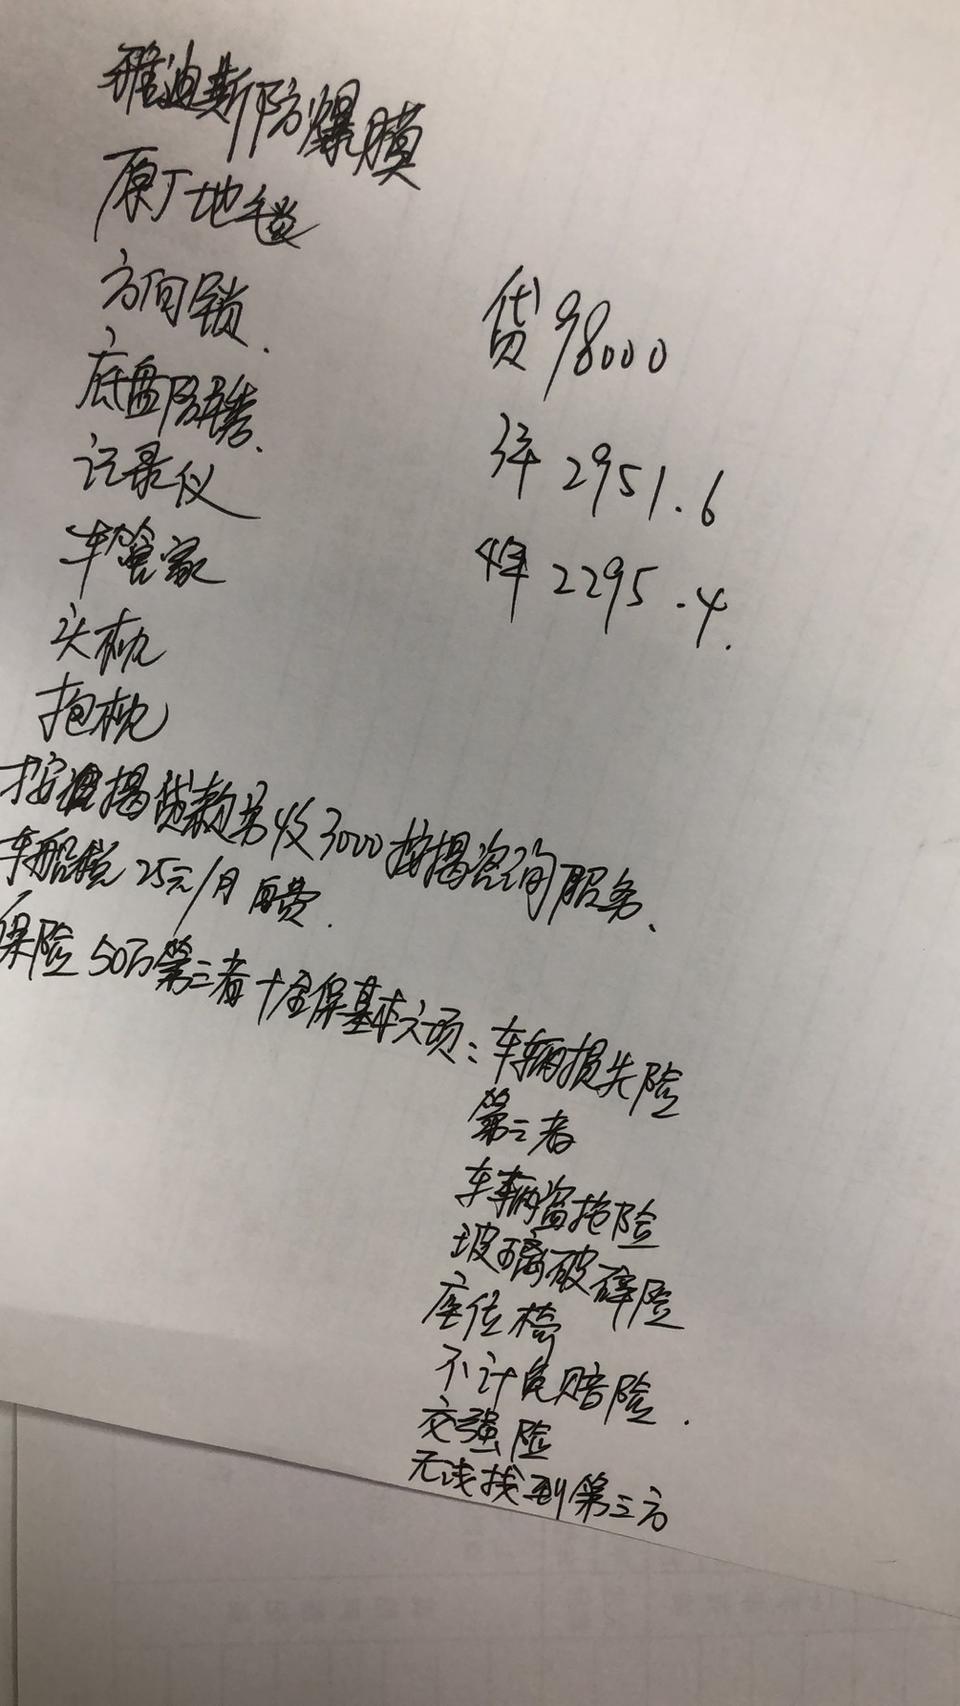 雅迪斯防爆膜
原厂地毯
方向锁.
底盘防锈.
记录仪
车管家
头枕
抱枕
贷98000
3年 2951.6
4年 2295.4.
按揭贷款另收3000按揭咨询服务、
车船税 25元/月 自费.
保险 50万第三者+全保基本六项:车辆损失险
第三者
车辆盗抢险
玻璃破碎险
座位椅
不计免赔险.
交强险
无法找到第三方